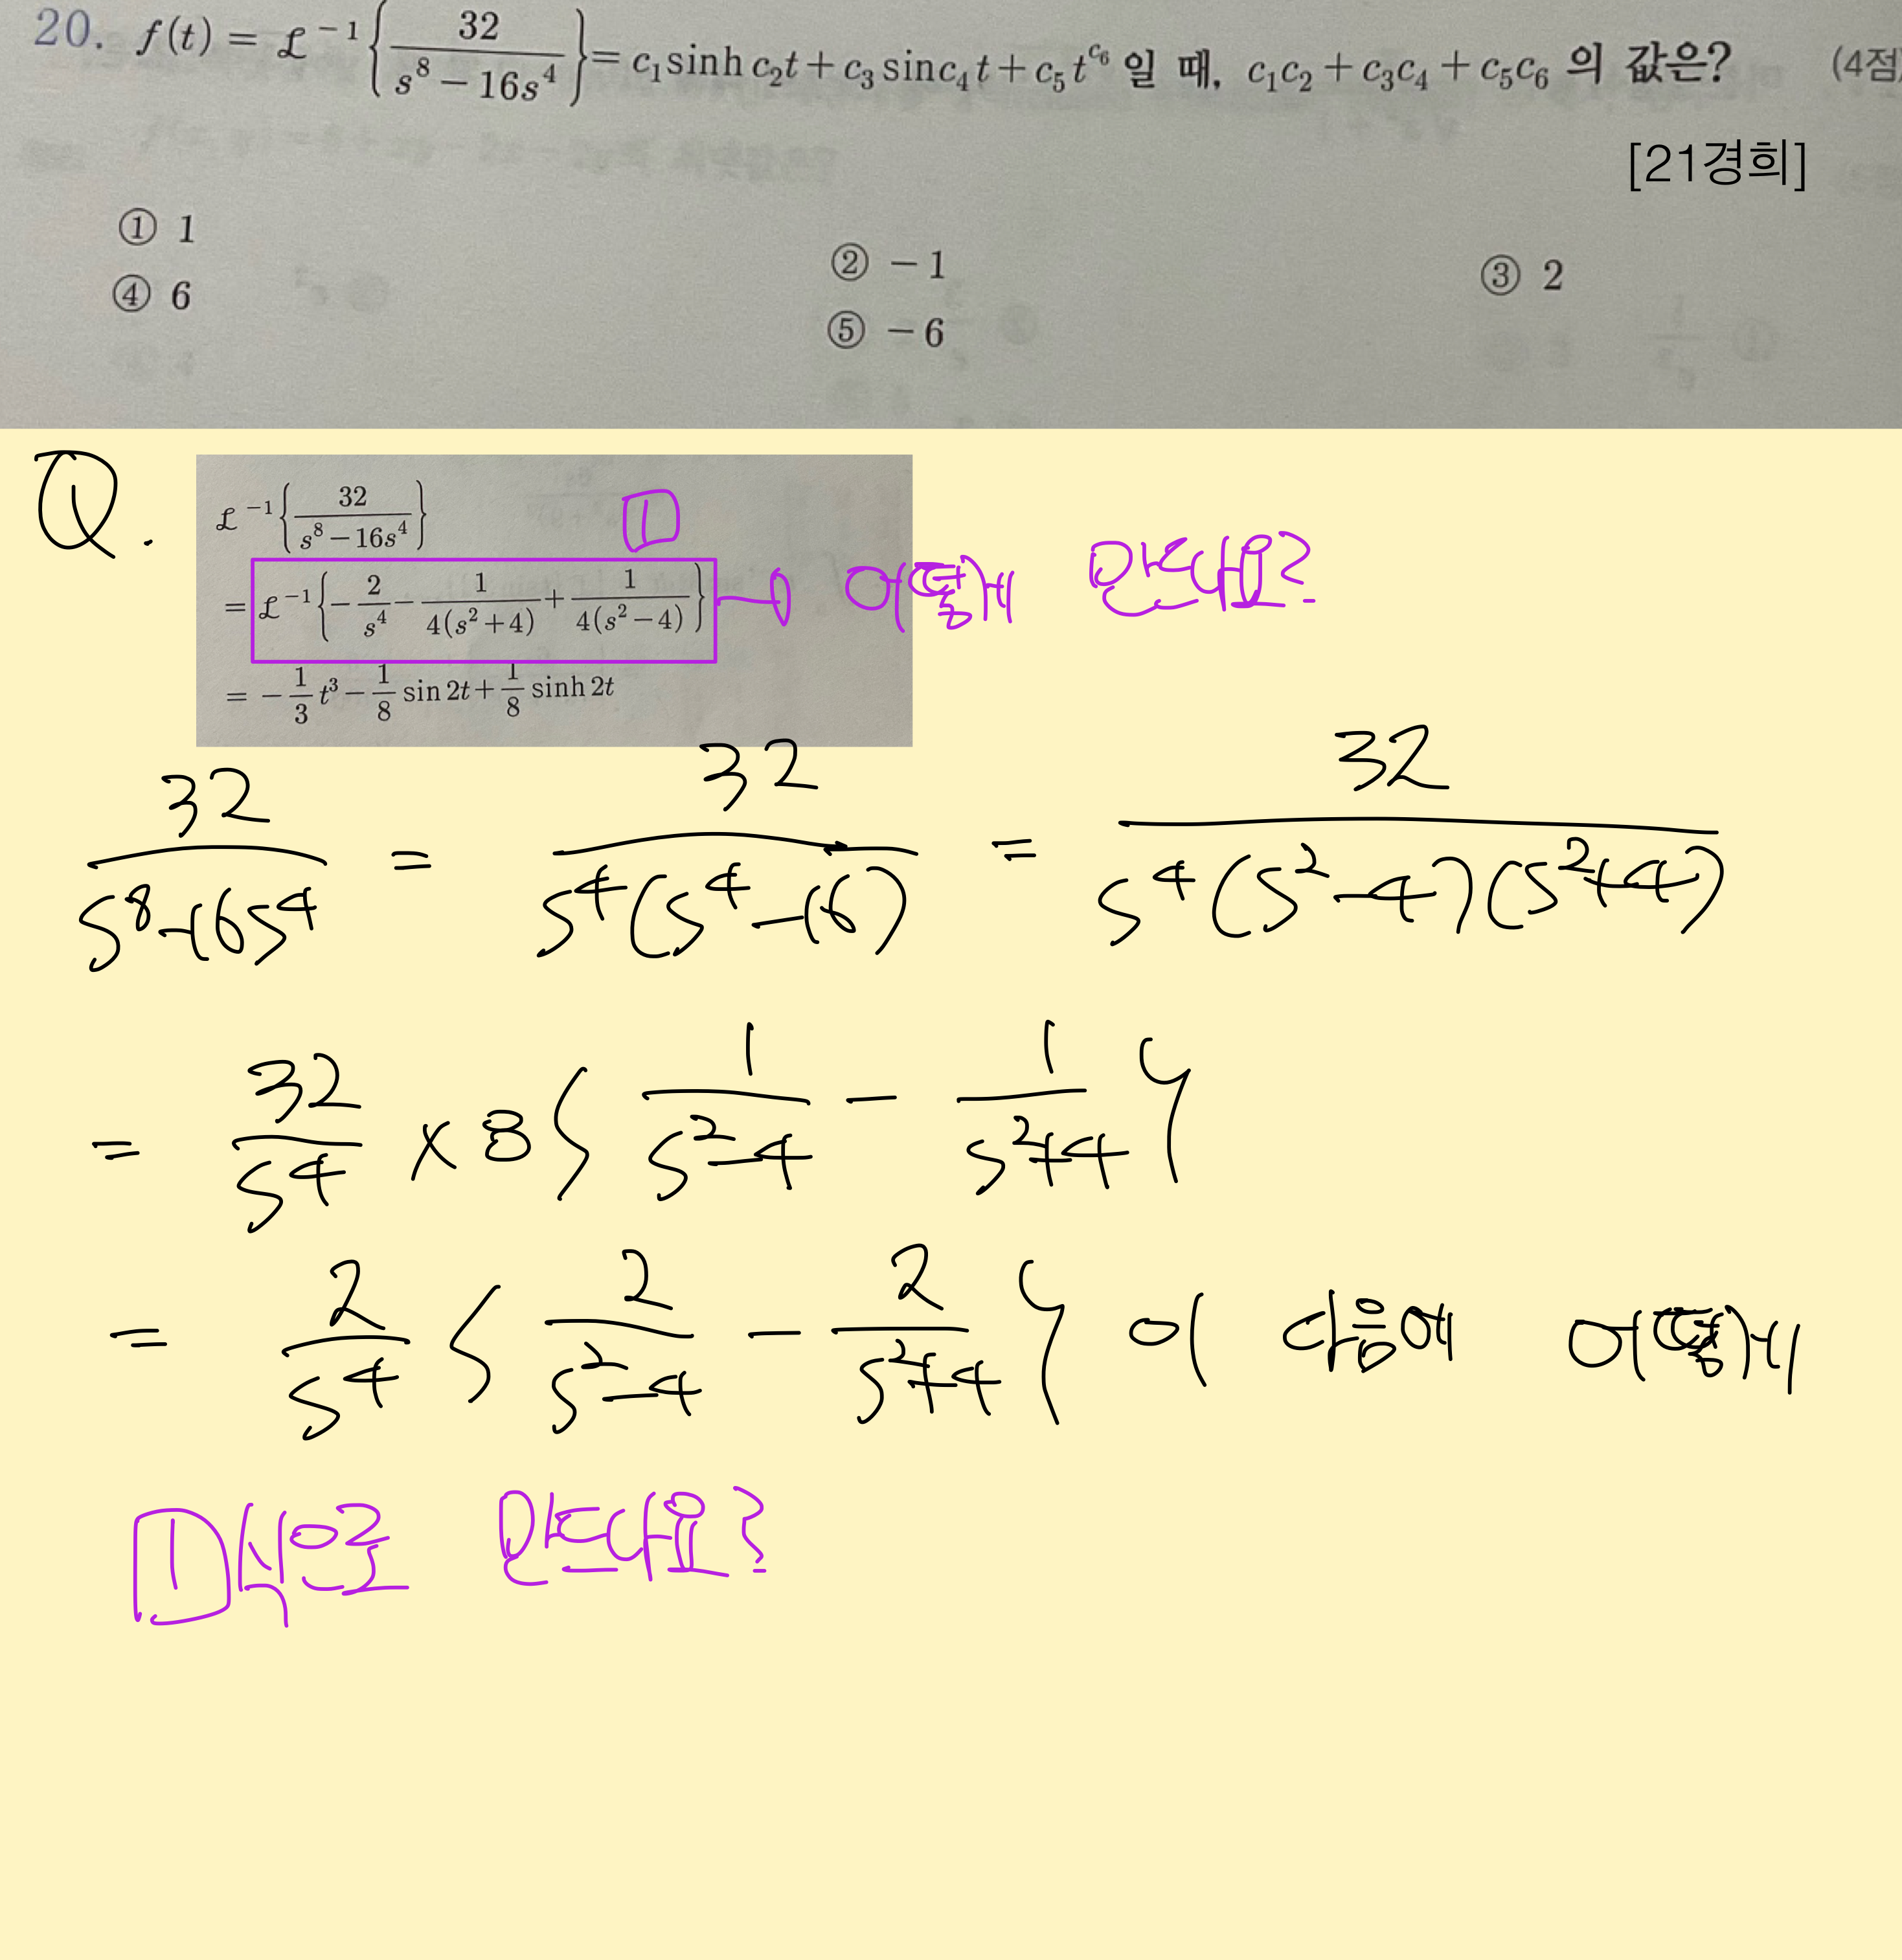 20. f(t) = ℒ⁻¹{32/(s⁸ − 16s⁴)} = c₁sinh c₂t + c₃ sin c₄t + c₅t^(c₆) 일 때, c₁c₂ + c₃c₄ + c₅c₆ 의 값은? (4점)
[21경희]
① 1
② −1
③ 2
④ 6
⑤ −6
Q.
ℒ⁻¹{32/(s⁸ − 16s⁴)}
1
= ℒ⁻¹{−2/s⁴ − 1/(4(s²+4)) + 1/(4(s²−4))} → 어떻게 만드나요?
= −1/3 t³ − 1/8 sin 2t + 1/8 sinh 2t
32/(s⁸−16s⁴) = 32/(s⁴(s⁴−16)) = 32/(s⁴(s²−4)(s²+4))
= 32/s⁴ × 8{1/(s²−4) − 1/(s²+4)}
= 2/s⁴ {2/(s²−4) − 2/(s²+4)} 이 다음에 어떻게
1 식으로 만드나요?